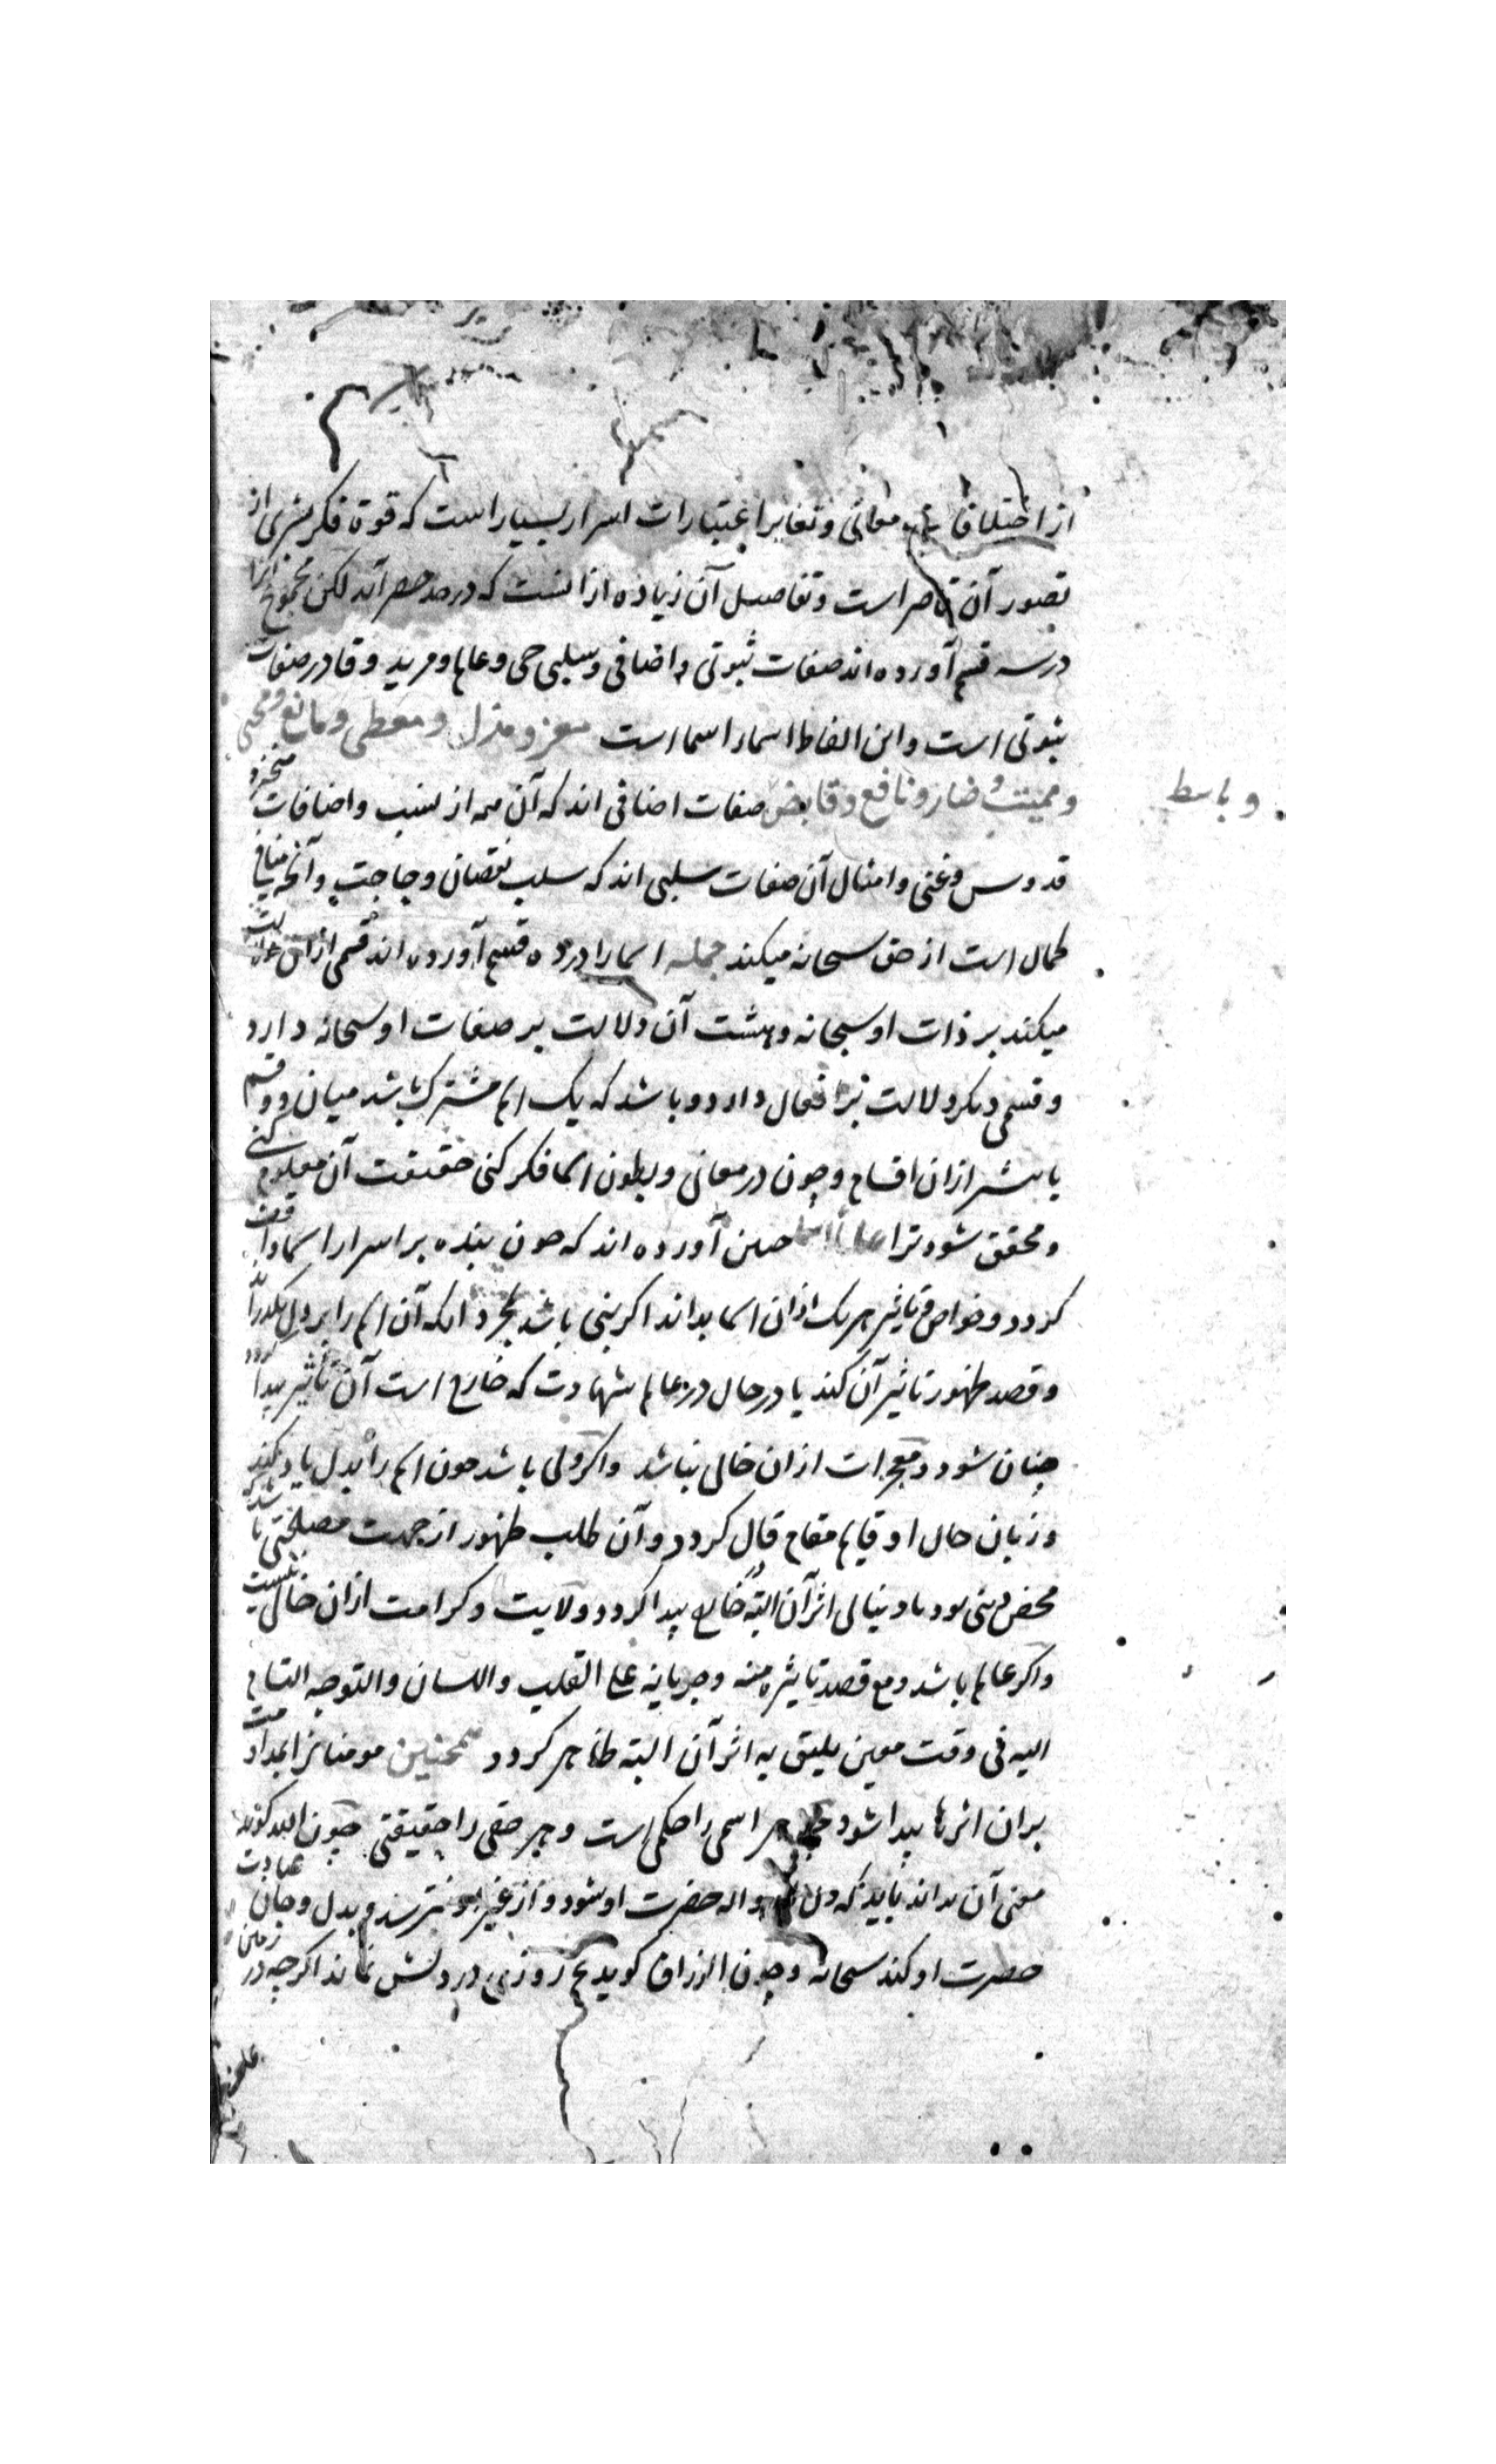 از اختلاف معانی و تغایر اعتبارات اسرار بسیار است که قوة فکر بشری از
تصور آن قاصر است و تفاصیل آن زیاده ازانست که در حد حصر آید لکن مجموع آنرا
در سه قسم آورده اند صفات ثبوتی و اضافی و سلبی حی و عالم و مرید و قادر صفات
ثبوتی است و این الفاظ اسماء اسما است معز و مذل و معطی و مانع و محیی
و ممیت و ضار و نافع و قابض صفات اضافی اند که آن همه از نسب و اضافات
و باسط
قدوس و غنی و امثال آن صفات سلبی اند که سلب نقصان و حاجت و آنچه منافی
کمال است از حق سبحانه میکند جمله اسما را در ده قسم آورده اند قسمی ازان
میکند بر ذات او سبحانه و هشت آن دلالت بر صفات او سبحانه دارد
و قسمی دیگر دلالت بر افعال دارد و باشد که یک اسم مشترک باشد میان دو قسم
یا بیشتر ازان اقسام و چون در معانی و بطون اسما فکر کنی حقیقت آن معلوم کنی
و محقق شود ترا چنین آورده اند که چون بنده بر اسرار اسما واقف
کردد و خواص و تاثیر هر یک ازان اسما بداند اکر نبی باشد بمجرد آنکه آن اسم را بر دل بکذراند
و قصد ظهور تاثیر آن کند یا در حال در عالم شهادت که خارج است آن تاثیر پیدا کردد
چنان شود و معجزات ازان خالی نباشد و اکر ولی باشد چون اسم را بدل یاد کند
و زبان حال او قایم مقام قال کردد و آن طلب ظهور از جهت مصلحتی باشد که
محض دینی بود یا دنیائی اثر آن البته در خارج پیدا کردد و ولایت و کرامت ازان خالی نیست
و اکر عالم باشد و مع قصد تاثیره منه و جریانه علی القلب و اللسان و التوجه التام
الیه فی وقت معین یلیق به اثر آن البته ظاهر کردد همچنین مومنانرا بمداومت
بران اثرها پیدا شود هر اسمی را حکمی است و هر حقی را حقیقتی چون الله کوید
معنی آن بداند باید که دل واله حضرت او شود و از غیر او نترسد و بدل و جان عبادت
حضرت او کند سبحانه و چون الرزاق کوید هیچ روزی در دلش نماند اکرچه در زمین